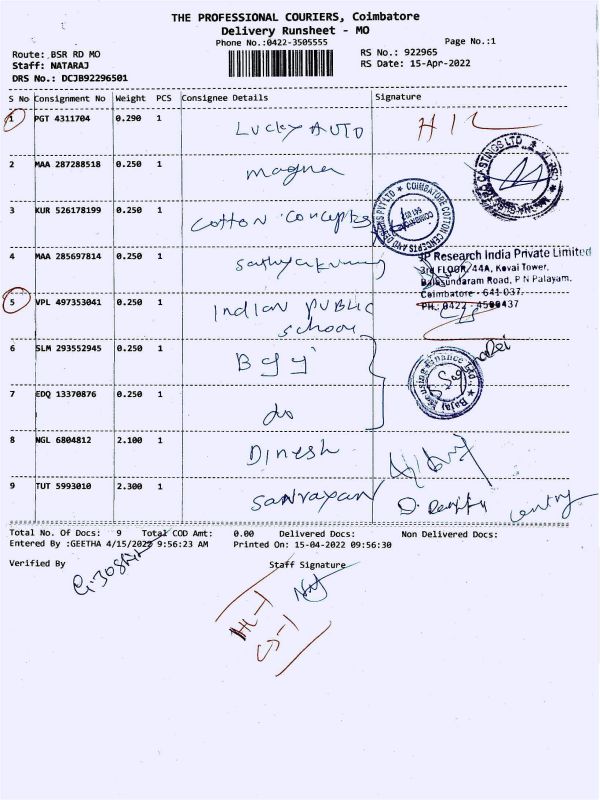 THE PROFESSIONAL COURIERS, Coimbatore
Delivery Runsheet - MO
Phone No.:0422-3505555
Page No.:1
Route: BSR RD MO
RS No.: 922965
Staff: NATARAJ
RS Date: 15-Apr-2022
DRS No.: DCJB92296501
S No Consignment No Weight PCS Consignee Details Signature
1 PGT 4311704 0.290 1 Lucky AUTO
2 MAA 287288518 0.250 1 magna
3 KUR 526178199 0.250 1 Cotton Concepts
COIMBATORE COTTON CONCEPTS AND DESIGNS PVT LTD
4 MAA 285697814 0.250 1 Sathyakumar
JP Research India Private Limited
3rd FLOOR, 44A, Kovai Tower,
Balasundaram Road, P N Palayam,
Coimbatore - 641 037.
PH: 0422 - 4500437
5 VPL 497353041 0.250 1 Indian public
school
6 SLM 293552945 0.250 1 Bajaj
7 EDQ 13370876 0.250 1 do
8 NGL 6804812 2.100 1 Dinesh
9 TUT 5993010 2.300 1
Total No. Of Docs: 9 Total COD Amt: 0.00 Delivered Docs: Non Delivered Docs:
Entered By :GEETHA 4/15/2022 9:56:23 AM Printed On: 15-04-2022 09:56:30
Verified By Staff Signature